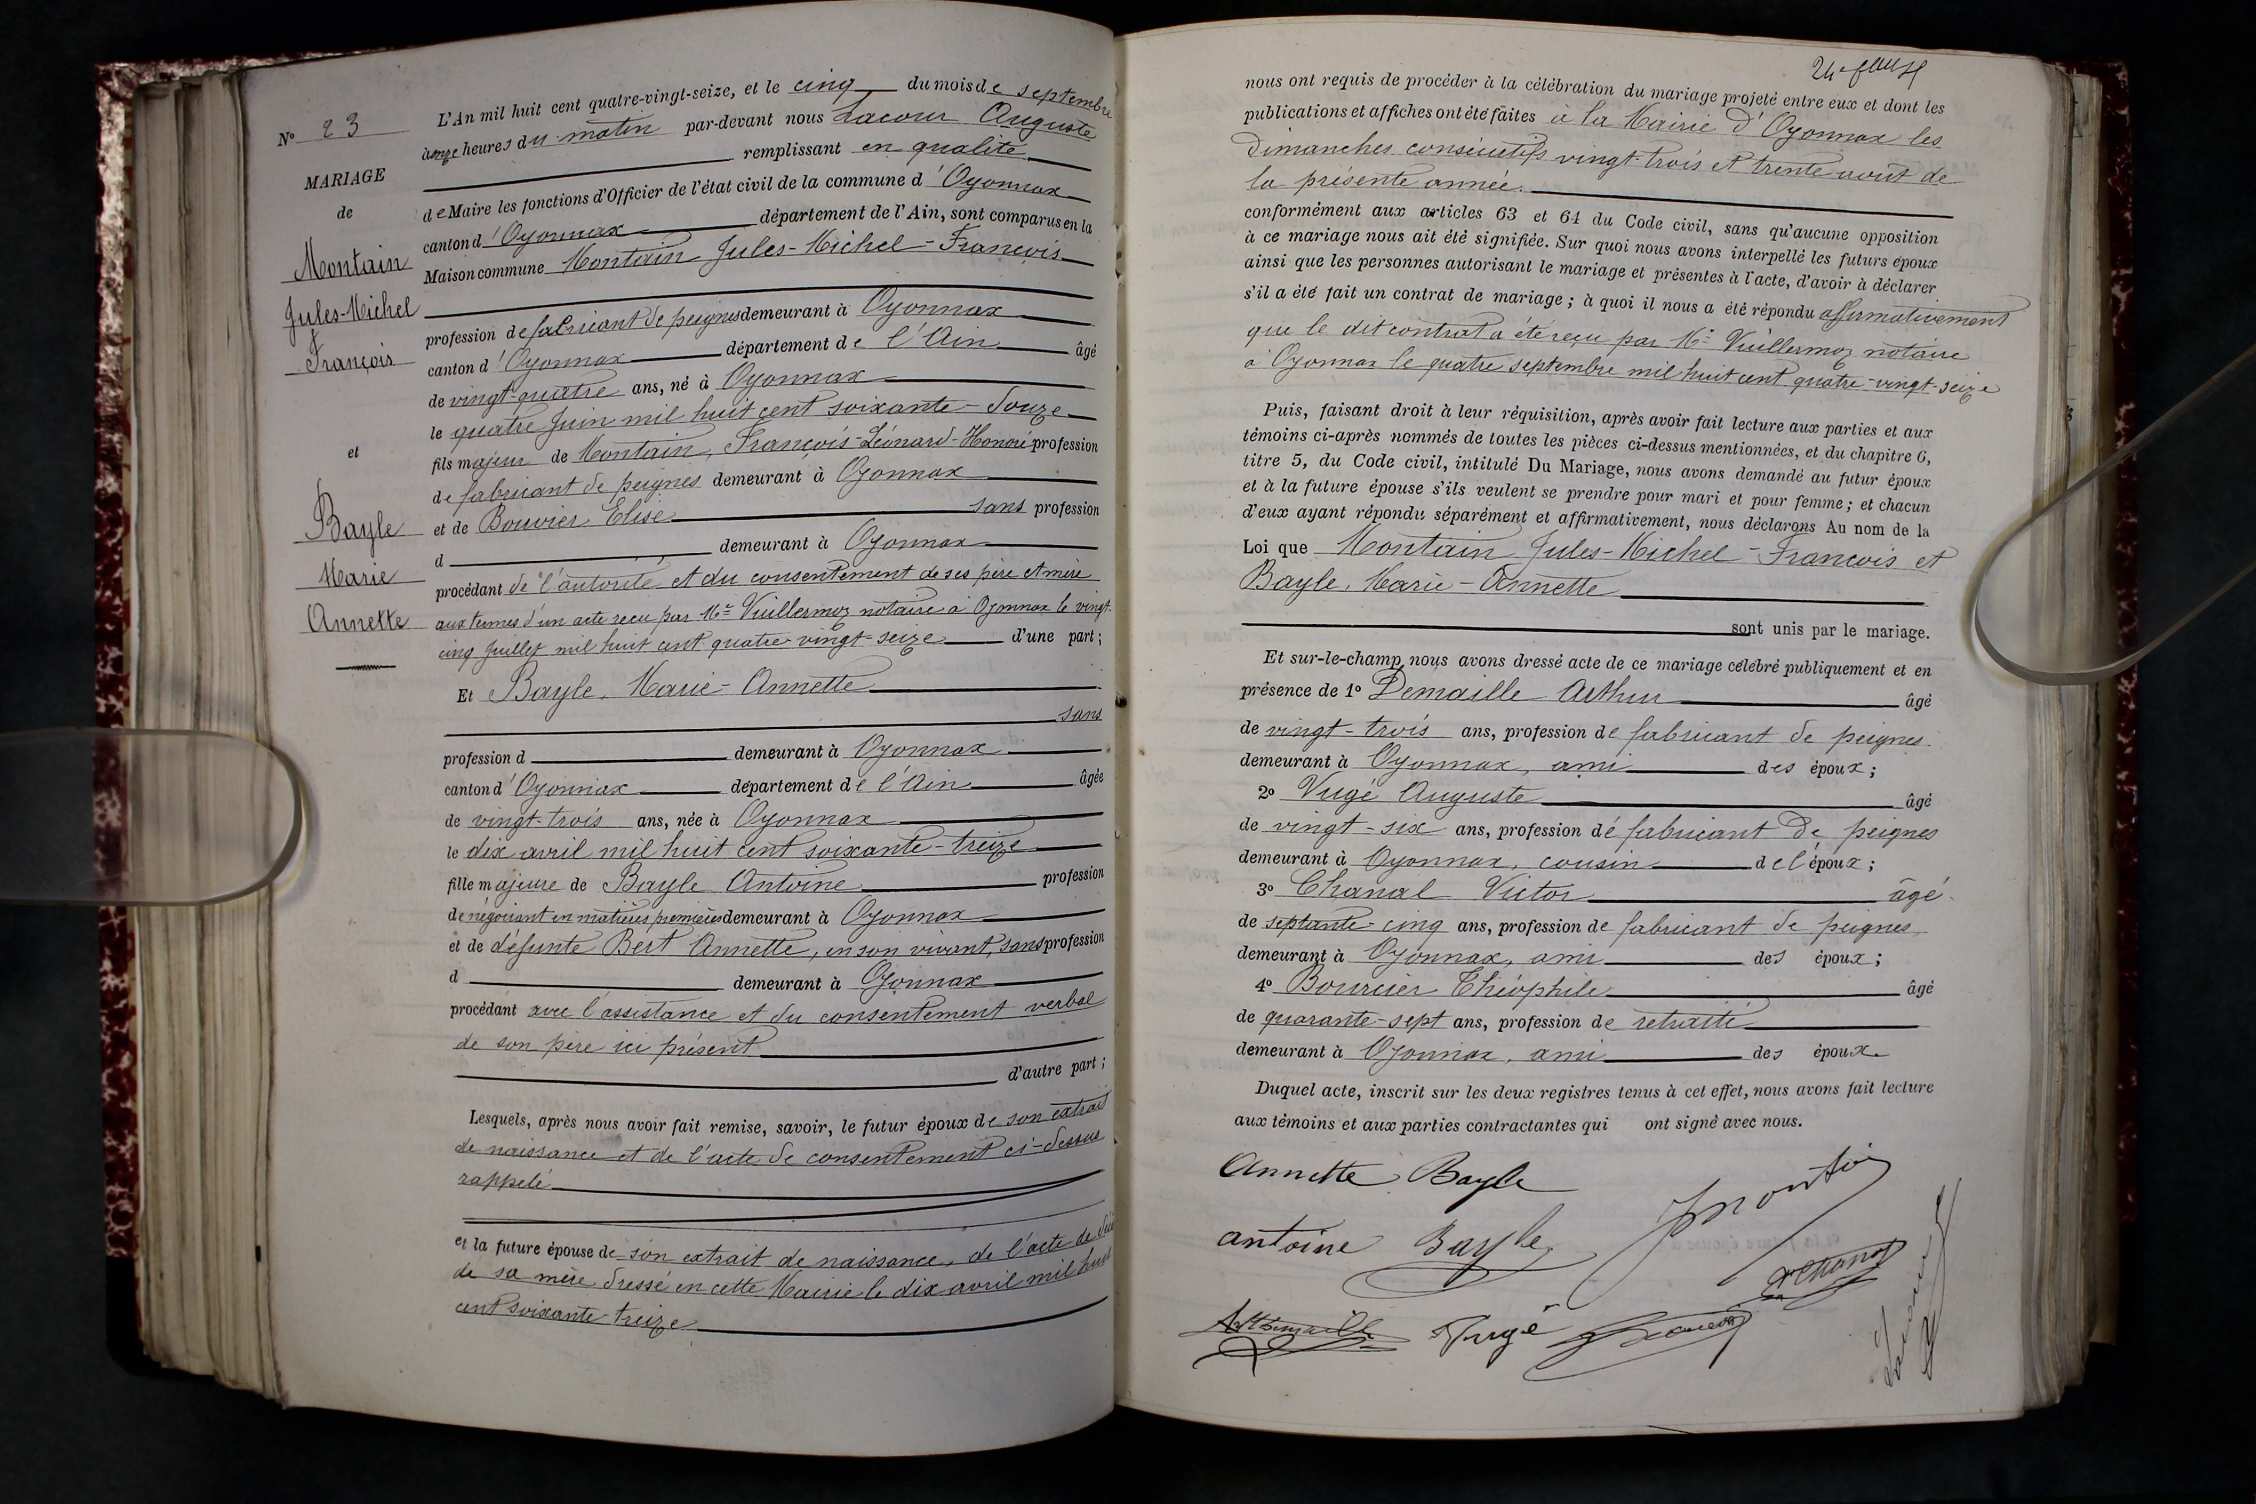 N° 23
MARIAGE
de
Montain
Jules-Michel
François
et
Bayle
Marie
Annette
L'An mil huit cent quatre-vingt-seize, et le cinq du mois de septembre
à onze heures du matin par-devant nous Lacour Auguste
remplissant en qualité
de Maire les fonctions d'Officier de l'état civil de la commune d'Oyonnax
canton d'Oyonnax département de l'Ain, sont comparus en la
Maison commune Montain Jules-Michel-François
profession de fabricant de peignes demeurant à Oyonnax
canton d'Oyonnax département de l'Ain âgé
de vingt-quatre ans, né à Oyonnax
le quatre Juin mil huit cent soixante-douze
fils majeur de Montain, François-Léonard-Honoré profession
de fabricant de peignes demeurant à Oyonnax
et de Bouvier Elise sans profession
d demeurant à Oyonnax
procédant de l'autorité et du consentement de ses père et mère
aux termes d'un acte reçu par Me Vuillermoz notaire à Oyonnax le vingt-
cinq Juillet mil huit cent quatre-vingt-seize d'une part;
Et Bayle, Marie-Annette
sans
profession d demeurant à Oyonnax
canton d'Oyonnax département de l'Ain âgée
de vingt-trois ans, née à Oyonnax
le dix avril mil huit cent soixante-treize
fille majeure de Bayle Antoine profession
de négociant en matières premières demeurant à Oyonnax
et de défunte Bert Annette, en son vivant, sans profession
d demeurant à Oyonnax
procédant avec l'assistance et du consentement verbal
de son père ici présent
d'autre part;
Lesquels, après nous avoir fait remise, savoir, le futur époux de son extrait
de naissance et de l'acte de consentement ci-dessus
rappelé
et la future épouse de son extrait de naissance, de l'acte de
de sa mère dressé en cette Mairie le dix avril mil huit
cent soixante-treize
nous ont requis de procéder à la célébration du mariage projeté entre eux et dont les
publications et affiches ont été faites à la Mairie d'Oyonnax les
Dimanches consécutifs vingt-trois et trente août de
la présente année.
conformément aux articles 63 et 64 du Code civil, sans qu'aucune opposition
à ce mariage nous ait été signifiée. Sur quoi nous avons interpellé les futurs époux
ainsi que les personnes autorisant le mariage et présentes à l'acte, d'avoir à déclarer
s'il a été fait un contrat de mariage; à quoi il nous a été répondu affirmativement
que le dit contrat a été reçu par Me Vuillermoz notaire
à Oyonnax le quatre septembre mil huit cent quatre-vingt-seize
Puis, faisant droit à leur réquisition, après avoir fait lecture aux parties et aux
témoins ci-après nommés de toutes les pièces ci-dessus mentionnées, et du chapitre 6,
titre 5, du Code civil, intitulé Du Mariage, nous avons demandé au futur époux
et à la future épouse s'ils veulent se prendre pour mari et pour femme; et chacun
d'eux ayant répondu séparément et affirmativement, nous déclarons Au nom de la
Loi que Montain Jules-Michel-François et
Bayle, Marie-Annette
sont unis par le mariage.
Et sur-le-champ nous avons dressé acte de ce mariage célébré publiquement et en
présence de 1° Demaille Arthur âgé
de vingt-trois ans, profession de fabricant de peignes
demeurant à Oyonnax, ami des époux;
2° Vugé Auguste âgé
de vingt-six ans, profession de fabricant de peignes
demeurant à Oyonnax, cousin de l'époux;
3° Chanal Victor âgé
de septante-cinq ans, profession de fabricant de peignes
demeurant à Oyonnax, ami des époux;
4° Bourcier Théophile âgé
de quarante-sept ans, profession de retraité
demeurant à Oyonnax, ami des époux.
Duquel acte, inscrit sur les deux registres tenus à cet effet, nous avons fait lecture
aux témoins et aux parties contractantes qui ont signé avec nous.
Annette Bayle
Antoine Bayle
Vugé